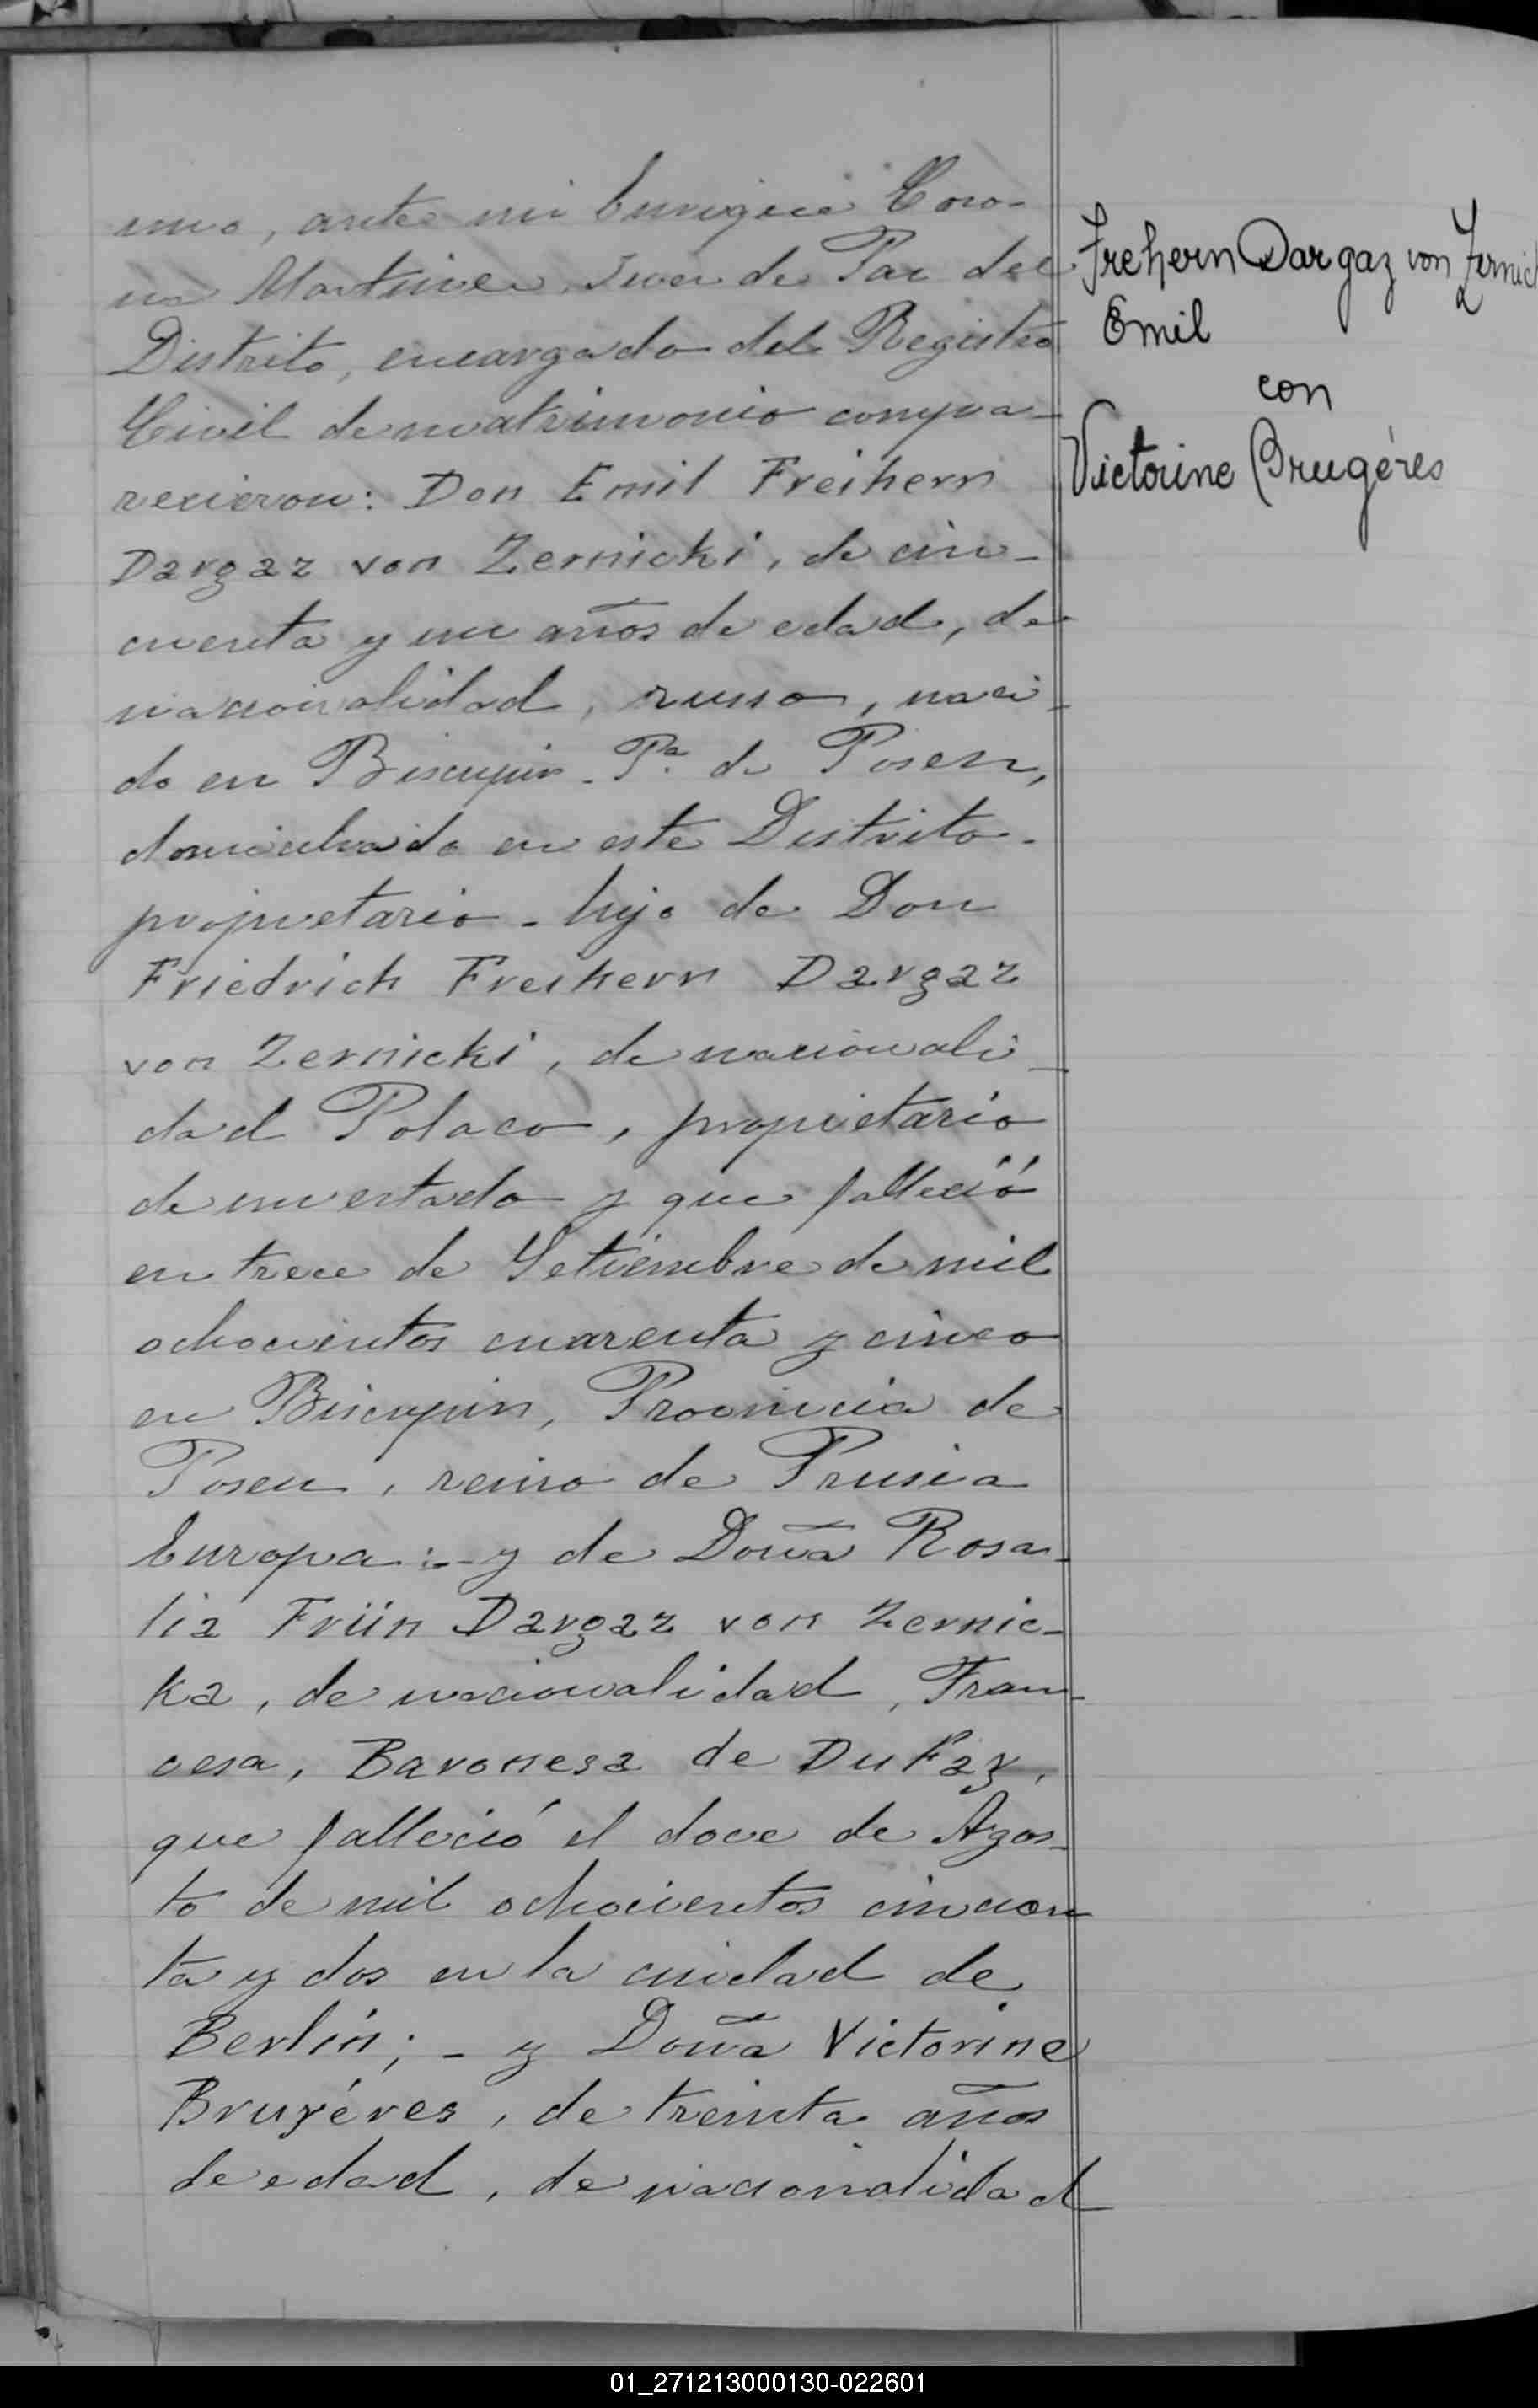 uno, ante mi Enrique Coro-
na Martinez, Juez de Paz del
Distrito, encargado del Registro
Civil de matrimonio compa-
recieron: Don Emil Freihern
Dargaz von Zernicki, de cin-
cuenta y un años de edad, de
nacionalidad, russo, naci-
do en Biscupin. Pª de Posen,
domiciliado en este Distrito.
propietario - hijo de Don
Friedrich Freihern Dargaz
von Zernicki, de nacionali-
dad Polaco, propietario
de un estado y que falleció
en trece de Setiembre de mil
ochocientos cuarenta y cinco
en Biscupin, Provincia de
Posen, reino de Prusia
Europa:- y de Doña Rosa-
lia Früin Dargaz von Zernic-
ka, de nacionalidad, Fran-
cesa, Baronesa de DuFay,
que falleció el doce de Agos-
to de mil ochocientos cincuen
ta y dos en la ciudad de
Berlin; - y Doña Victorine
Brugéres, de treinta años
de edad, de nacionalidad
Frehern Dargaz von Zernick
Emil
con
Victorine Brugéres
01_271213000130-022601